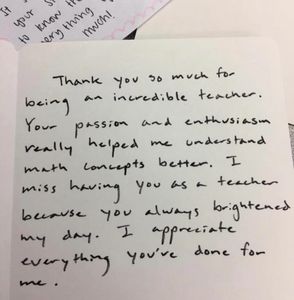 your s
to know tha
everything
much!
Thank you so much for
being an incredible teacher.
Your passion and enthusiasm
really helped me understand
math concepts better. I
miss having you as a teacher
because you always brightened
my day. I appreciate
everything you've done for
me.